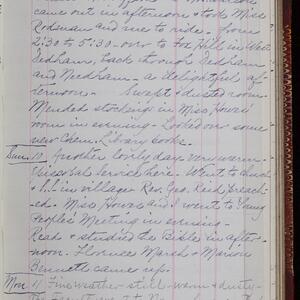 came out in afternoon & took Miss
Rodman and me to ride. From
2:30 to 5:30 - over to Fox Hill in West
Dedham, back through Dedham
and Needham - a delightful af-
ternoon. Swept & dusted room.
Mended stocking in Miss Howes'
room in evening - Looked over some
new Chem. Library books.
Sun. 10. Another lovely day very warm -
Service here. Went to church
in village - Rev. Geo. Reid preach-
ed. Miss Howes and I went to Young
People's Meeting in evening -
Read & studied the Bible in after-
noon. Florence Marsh & Marion
Bennett came up.
Mon. 11 Fine weather still - warm & dusty -